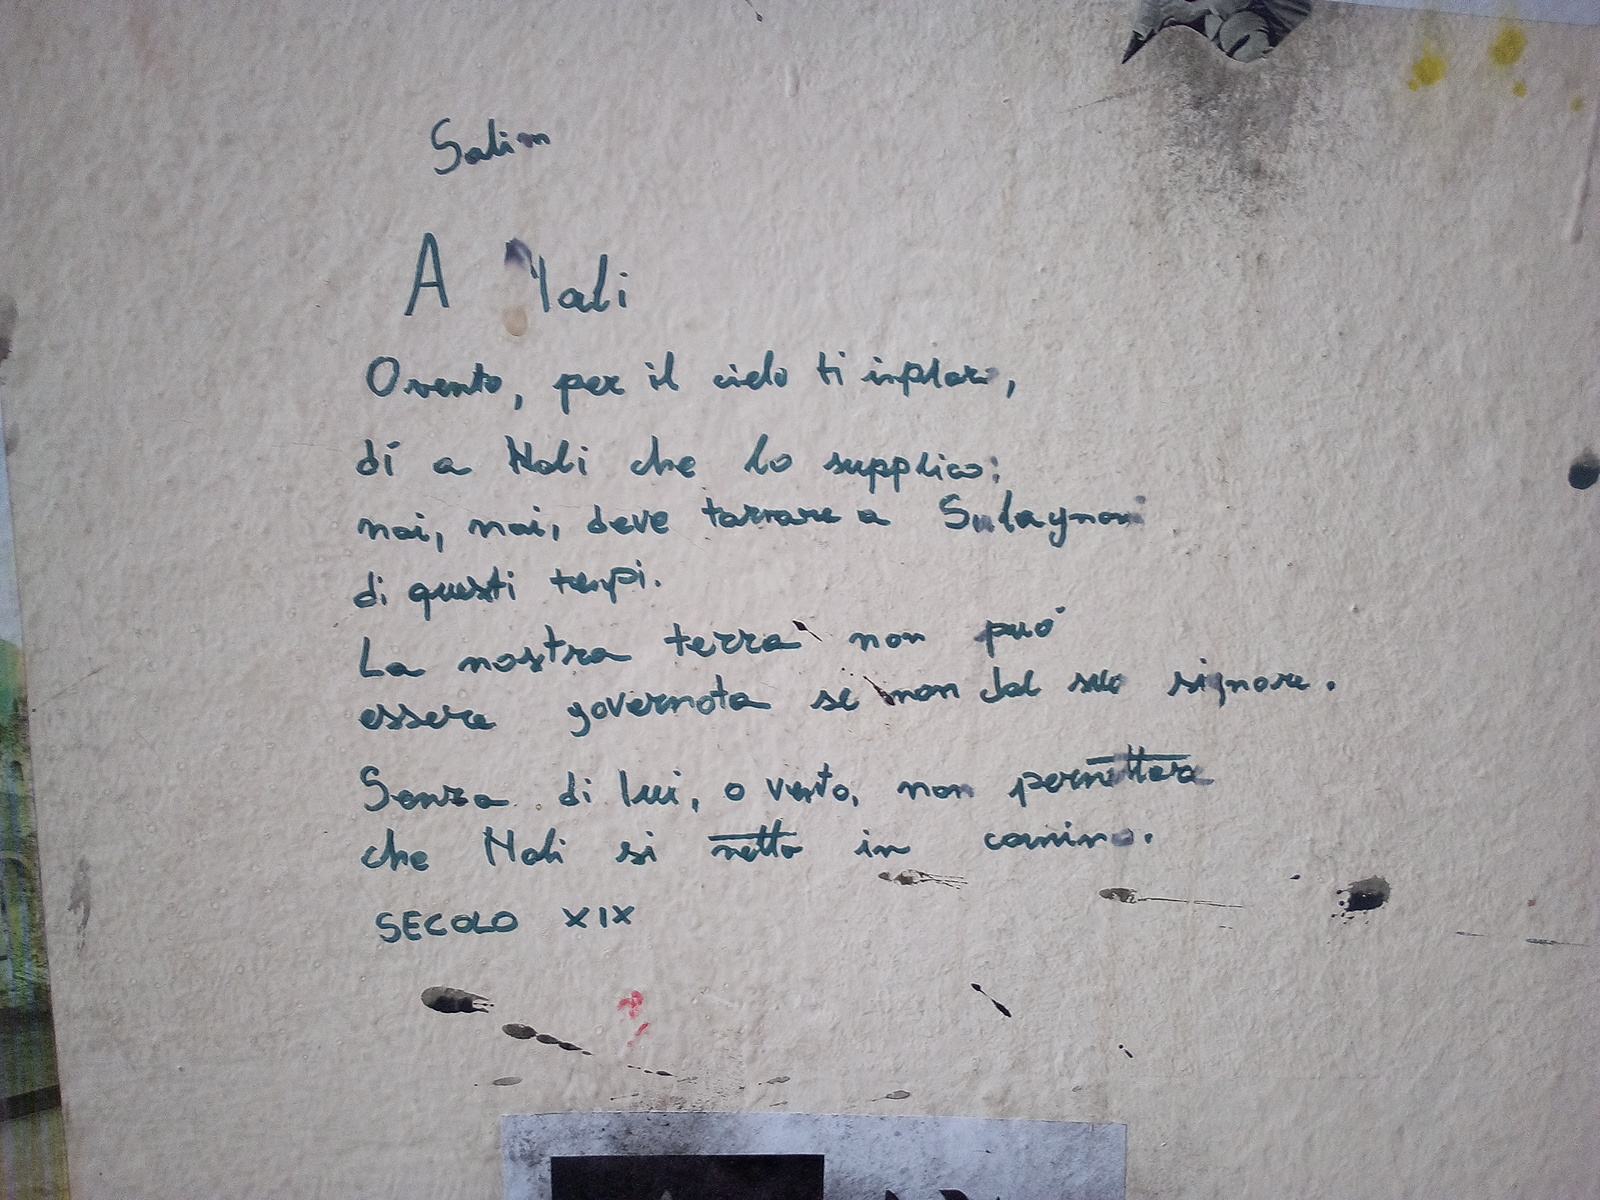 Salim
A Mali
O vento, per il cielo ti imploro,
dì a Mali che lo supplico:
mai, mai, deve tornare a
di questi tempi.
La nostra terra non può
essere governata se non dal suo signore.
Senza di lui, o vento, non permettere
che Mali si metta in cammino.
SECOLO XIX